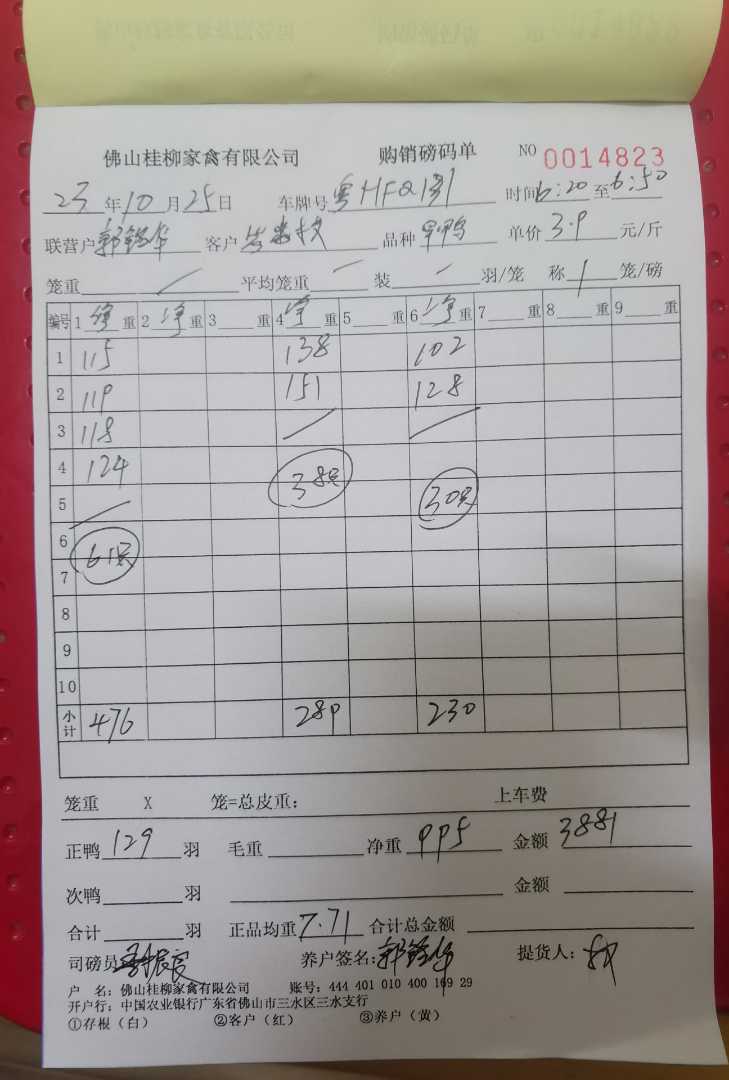 佛山桂柳家禽有限公司 购销磅码单 NO 0014823
23 年 10 月 25 日 车牌号 粤HFQ 时间 6:20 至 6:50
联营户 郭锦华 客户 品种 旱鸭 单价 3.9 元/斤
笼重 / 平均笼重 / 装 / 羽/笼 称 1 笼/磅
编号 1 净 重 2 净 重 3 重 4 净 重 5 重 6 净 重 7 重 8 重 9 重
1 115 138 102
2 119 151 128
3 118 / /
4 124 38只
5 / 30只
6 61只
7
8
9
10
小计 476 289 230
笼重 X 笼=总皮重: 上车费
正鸭 129 羽 毛重 净重 995 金额 3881
次鸭 羽 金额
合计 羽 正品均重 7.71 合计总金额
司磅员 养户签名: 郭锦华 提货人:
户 名: 佛山桂柳家禽有限公司 账号: 444 401 010 400 169 29
开户行: 中国农业银行广东省佛山市三水区三水支行
①存根(白) ②客户(红) ③养户(黄)